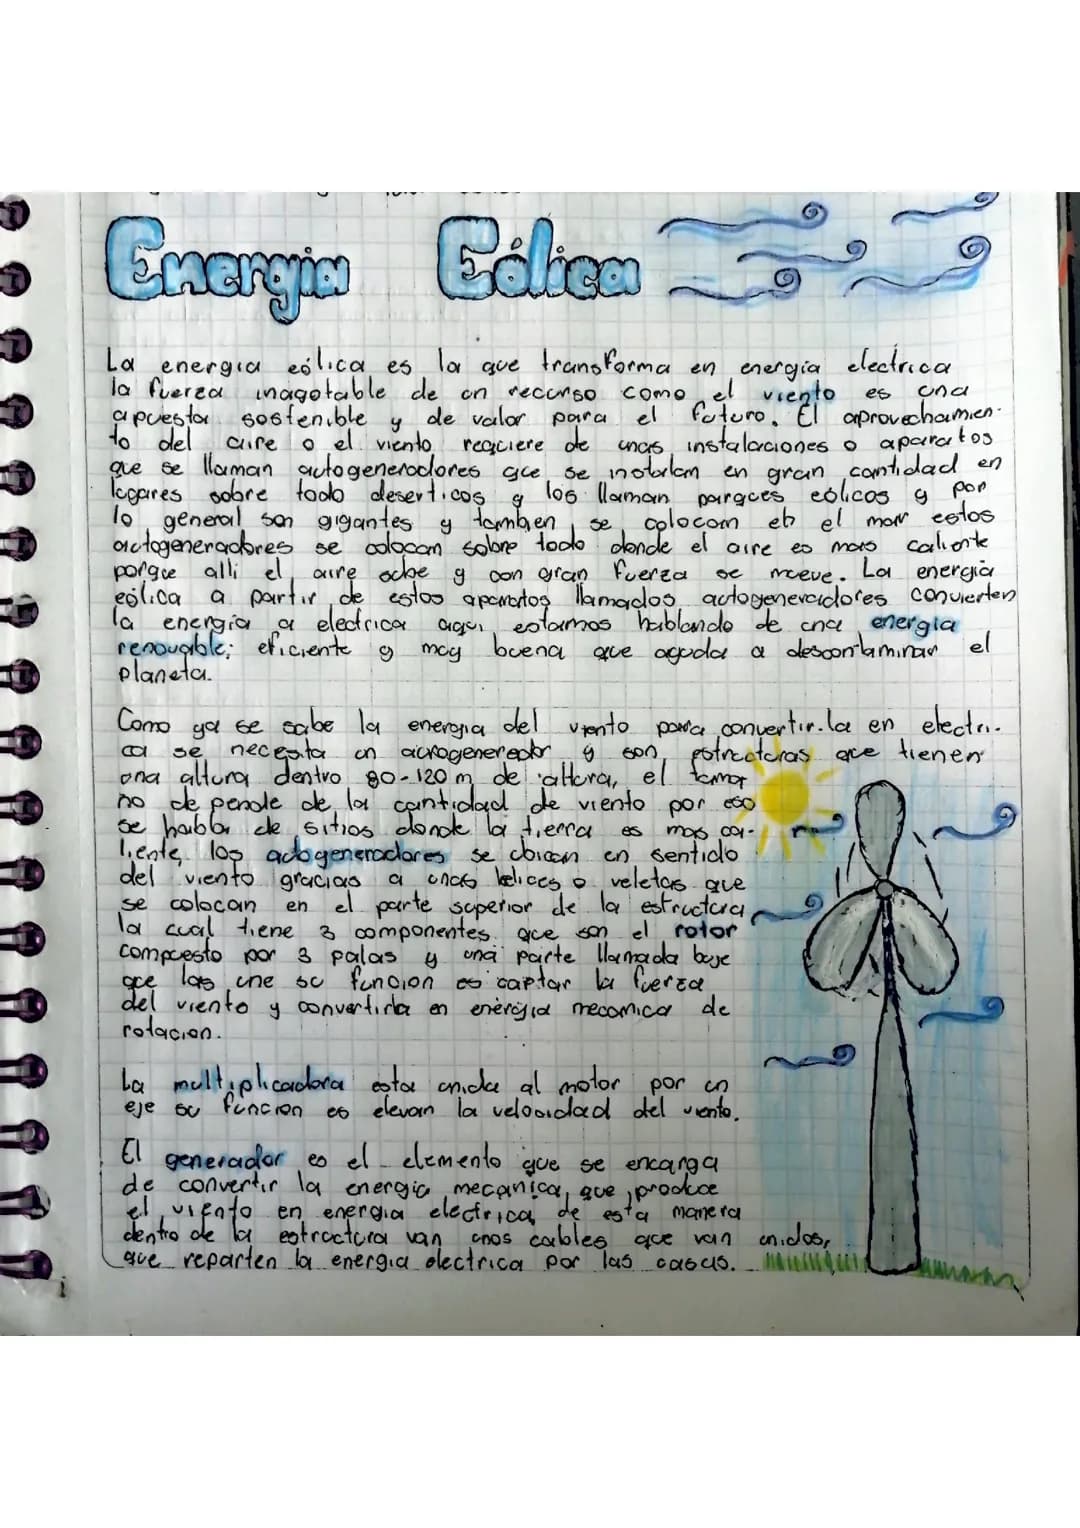 Energia Eólica
La energia eólica es la que transforma en energia electrica
la fuerza inagotable de un recurso como el viento es una
apuesta sostenible y de valor para el futuro. El aprovechamien-
to del aire o el viento requiere de unas instalaciones o aparatos
que se llaman autogeneradores que se instalan en gran cantidad en
lugares sobre todo deserticos y los llaman parques eólicos y por
lo general son gigantes y tambien se colocan en el mar estos
autogeneradores se colocan sobre todo donde el aire es mas caliente
porque alli el aire sube y con gran fuerza se mueve. La energia
eólica a partir de estos aparatos llamados autogeneradores convierten
la energia a electrica aqui estamos hablando de una energia
renovable; eficiente y muy buena que ayuda a descontaminar el
planeta.
Como ya se sabe la energia del viento para convertir-la en electri-
ca se necesita un aerogenereador y son estructuras que tienen
una altura dentro 80-120 m de altura, el tamaño
no de pende de la cantidad de viento por eso
se habla de sitios donde la tierra es mas ca-
liente, los autogeneradores se ubican en sentido
del viento gracias a unas helices o veletas que
se colocan en el parte superior de la estructura
la cual tiene 3 componentes que son el rotor
compuesto por 3 palas y una parte llamada buje
que las une su funcion es captar la fuerza
del viento y convertirla en enérgia mecanica de
rotacion.
La multiplicadora esta unida al motor por un
eje su funcion es elevan la velocidad del viento.
El generador es el elemento que se encarga
de convertir la energia mecanica, que produce
el viento en energia electrica, de esta manera
dentro de la estructura van unos cables que van unidos,
que reparten la energia electrica por las casas.